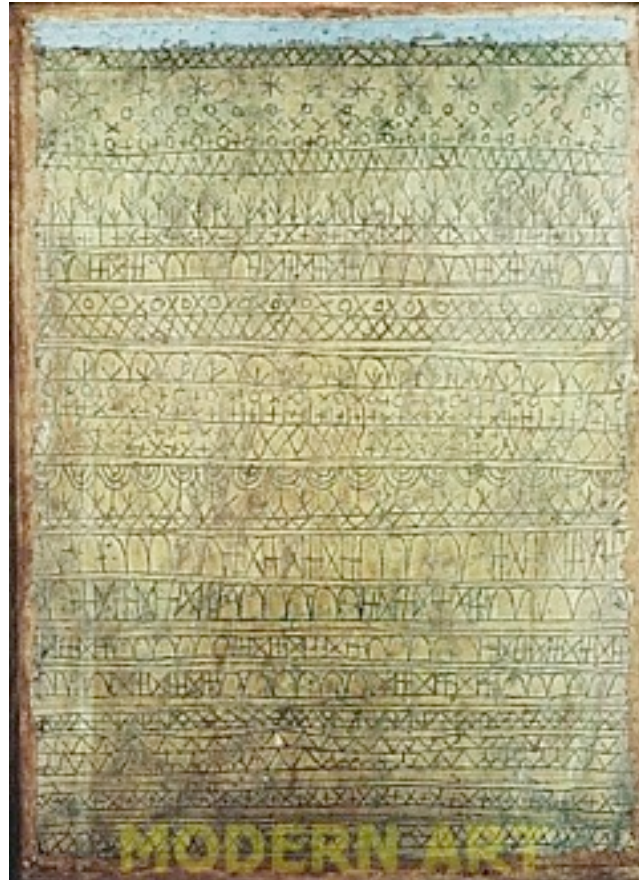 MODERN ART